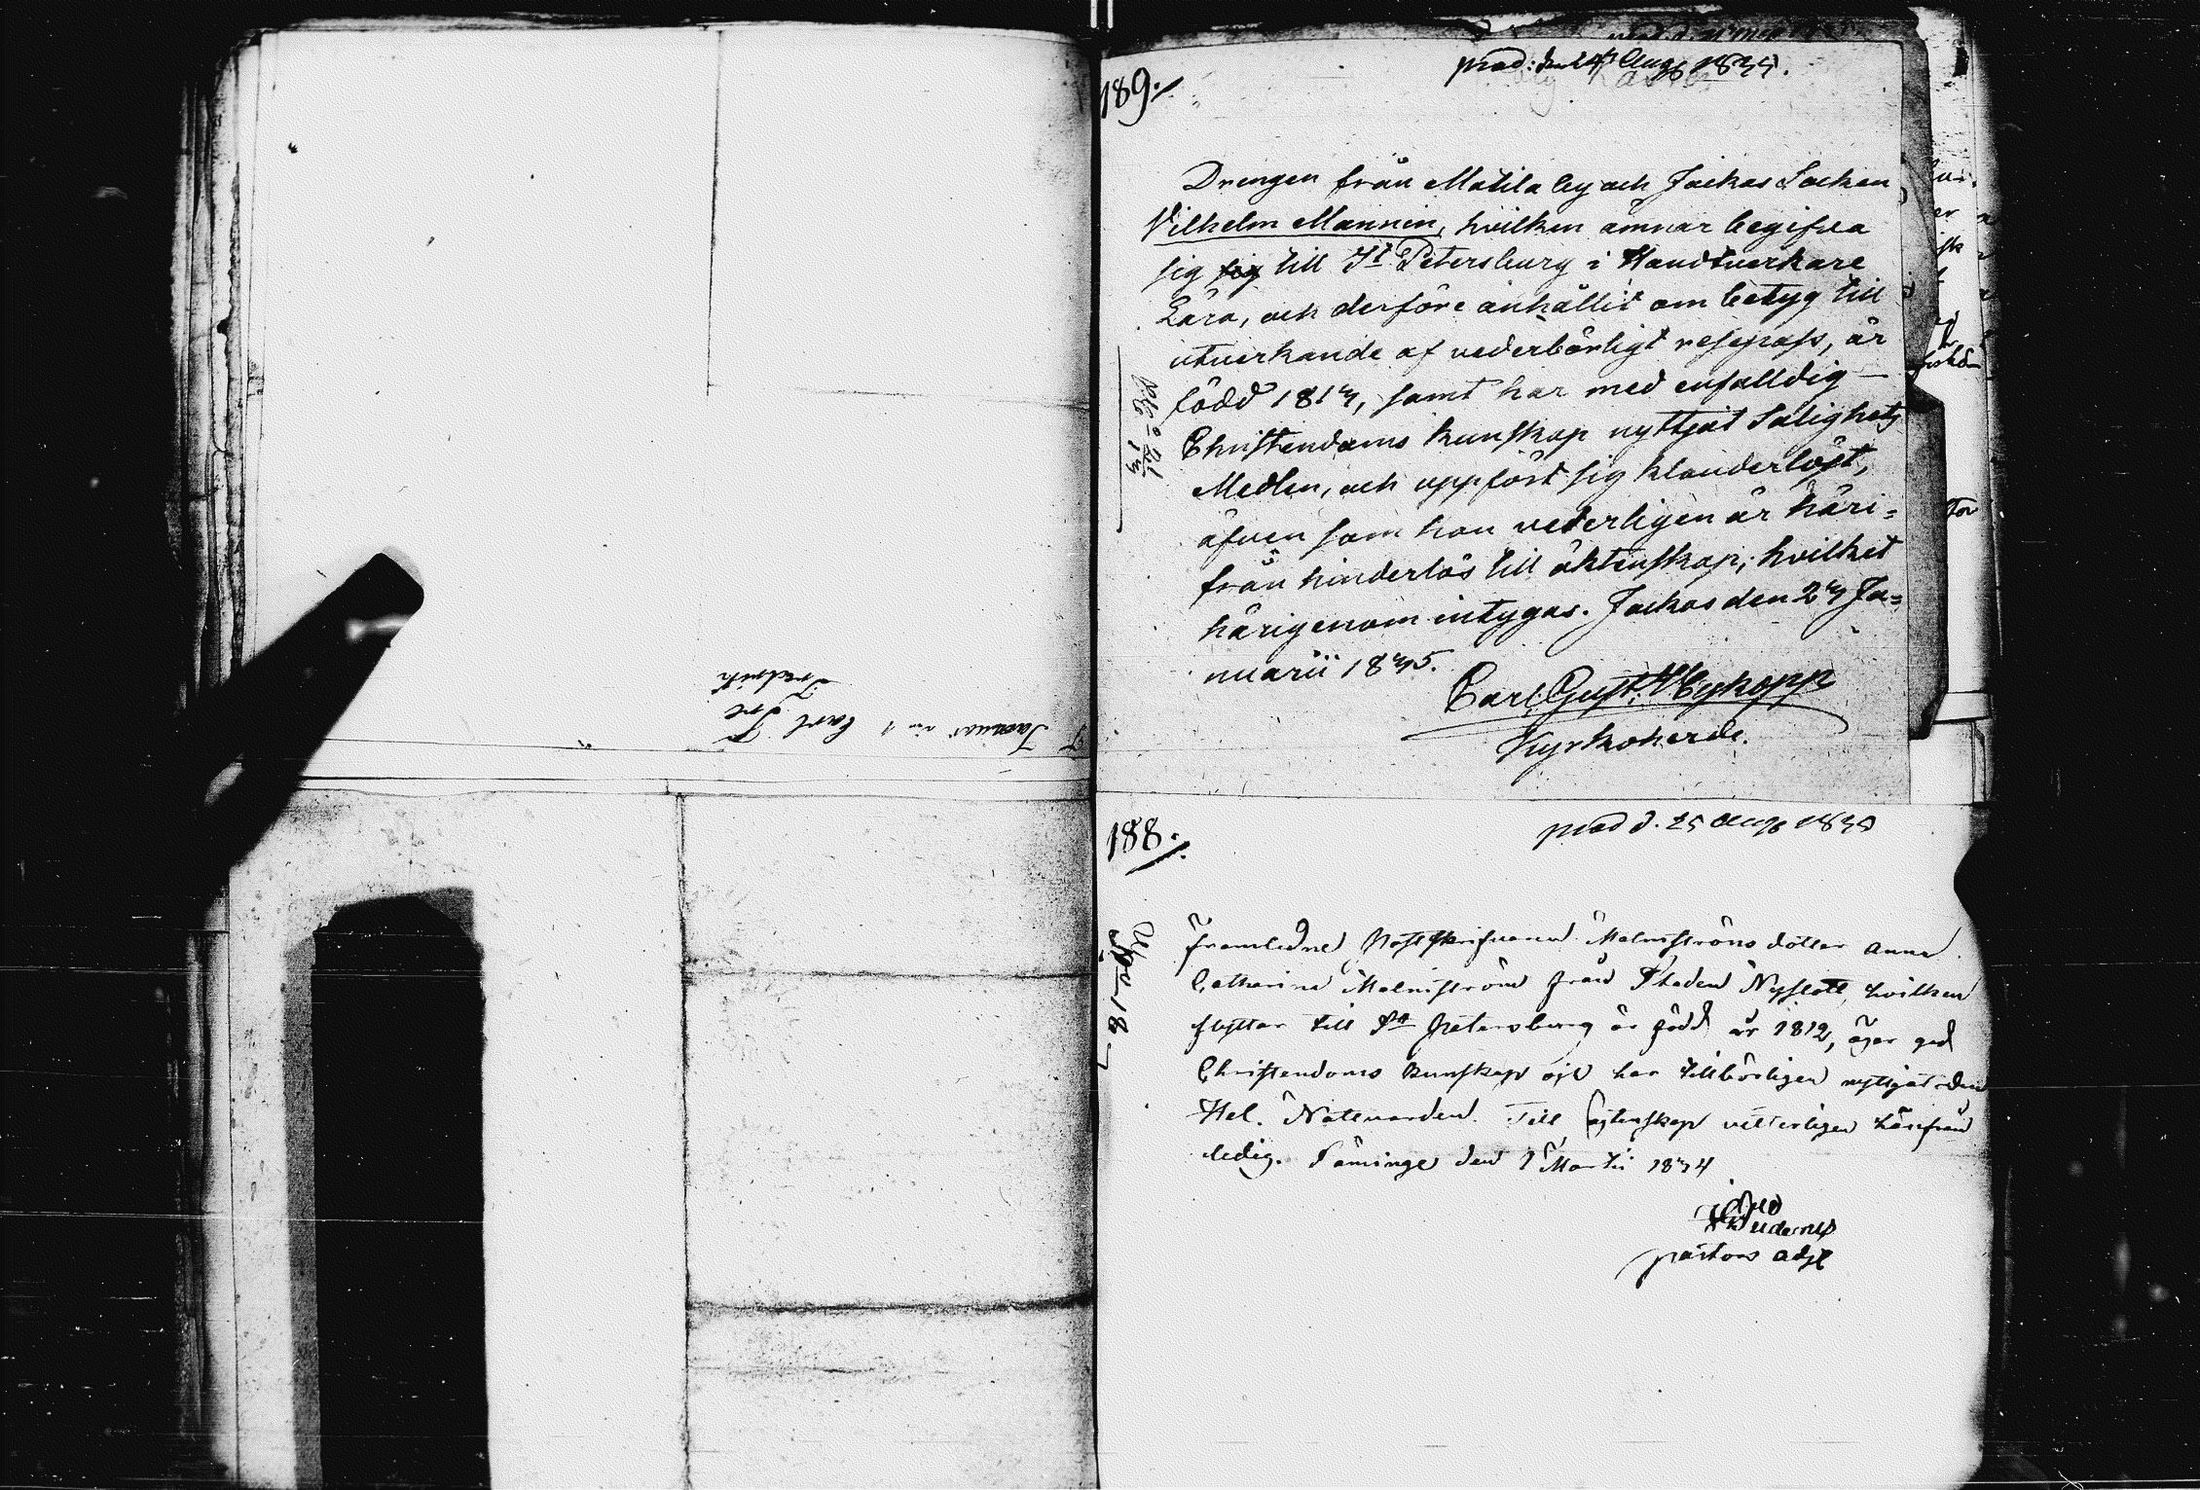 189.
prod: den 24 Aug 1835.
Drengen från Matila by och Jockas Socken
Vilhelm Mannin, hvilken ämnar begifva
sig sig till St Petersburg i Handtverkare
Lära, och derföre anhållit om betyg till
utverkande af vederbörligt resepass, är
född 1817, samt har med enfalldig
Christendoms kunskap nyttjat Salighets
Medlen, och uppfört sig klanderlöst,
äfven som han vederligen är häri-
från hinderlös till äktenskap; hvilket
härigenom intygas. Jockas den 27 Ja-
nuarii 1835.
Carl Gust. Wykopp
Kyrkoherde.
188.
prod d. 25 Aug 1835
Framledne Postskrifvaren Malmströms dotter Anna
Catharina Malmström från Staden Nyslott, hvilken
flyttar till St Petersburg är född år 1812, äger god
Christendoms kunskap och har tillbörligen nyttjat den
Hel. Nattvarden. Till äktenskap vitterligen härifrån
ledig. Säminge den 1 Martii 1834
pastors adj